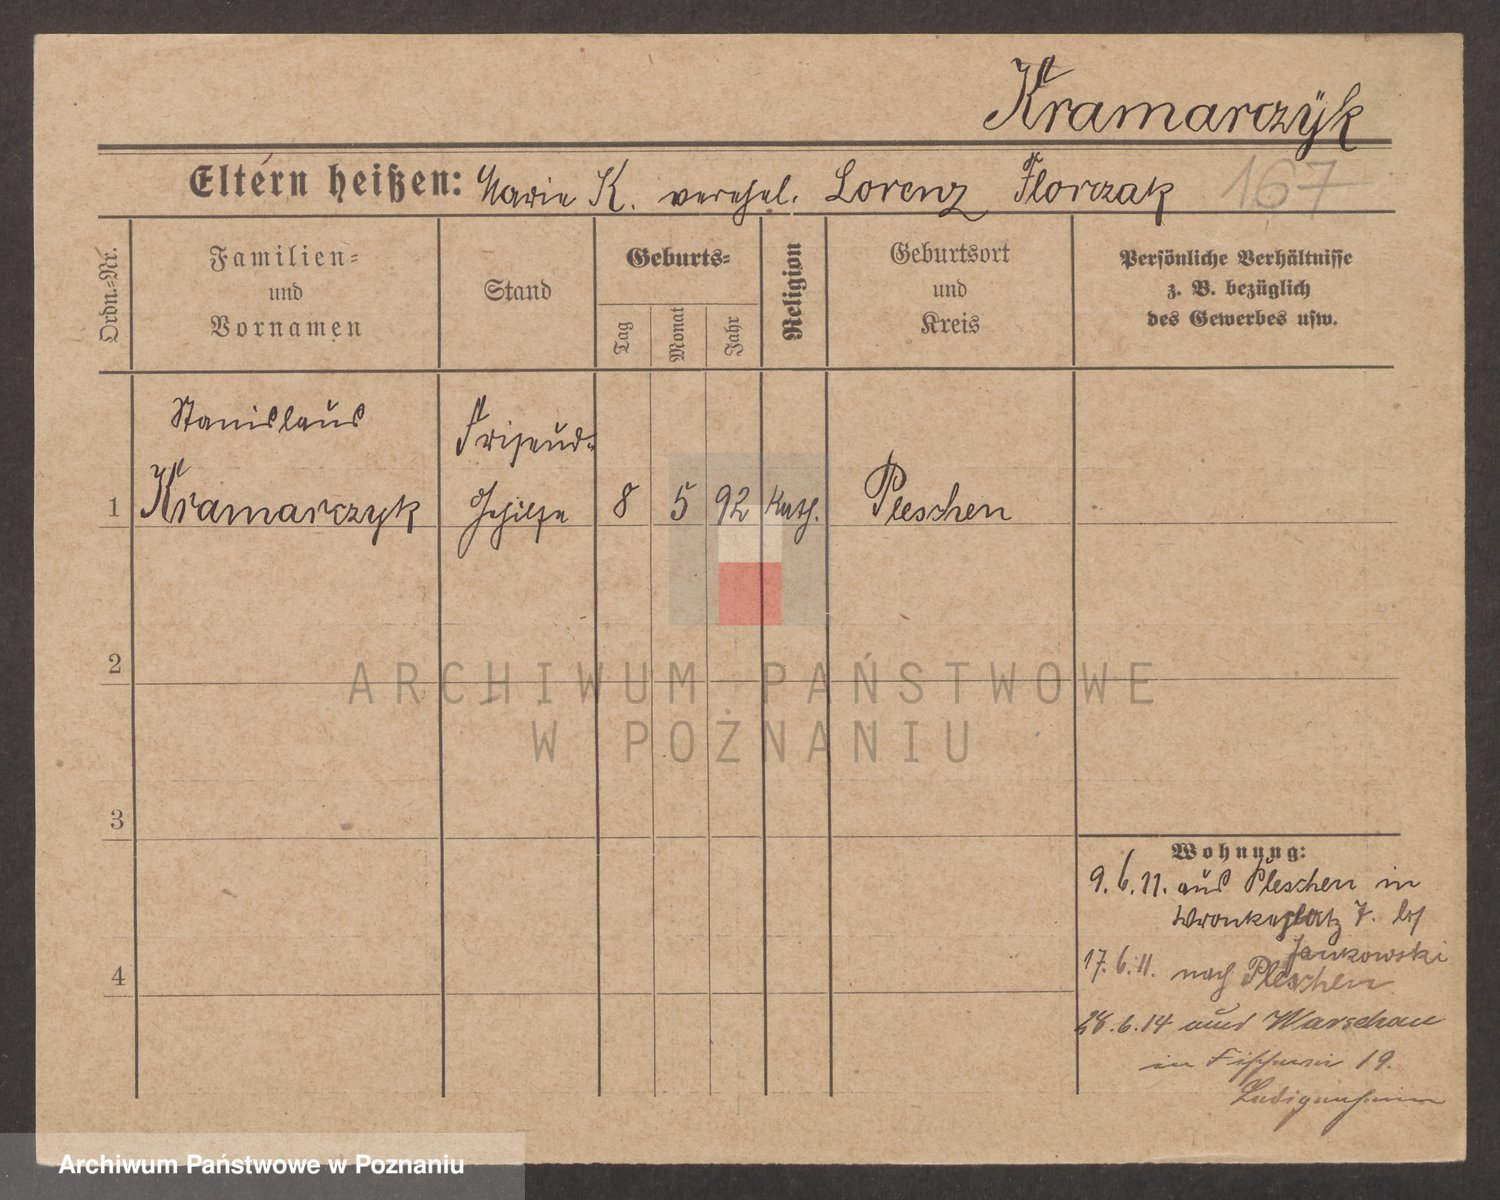 Kramarczÿk
Eltern heißen: Marie K. verehel. Lorenz Florczak 167
Ordn.=Nr.
Familien=
und
Vornamen
Stand
Geburts=
Tag
Monat
Jahr
Religion
Geburtsort
und
Kreis
Persönliche Verhältnisse
z. B. bezüglich
des Gewerbes usw.
Stanislaus
Kramarczyk
Friseur=
Gehilfe
1
8
5
92
Kath.
Pleschen
2
ARCHIWUM PAŃSTWOWE
W POZNANIU
3
4
Wohnung:
9.6.11. aus Pleschen in
Wronkerplatz 7. bei
Jankowski
17.6.11. nach Pleschen
28.6.14 aus Warschau
in Fischerei 19.
Ledigenheim
Archiwum Państwowe w Poznaniu